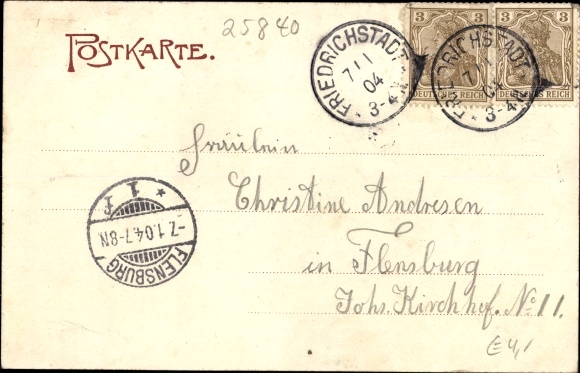 25840
POSTKARTE.
FRIEDRICHSTADT
7 1 1
04
3-4N
3 3
DEUTSCHES REICH DEUTSCHES REICH
FRIEDRICHSTADT
7 1
04
3-4N
Fräulein
Christine Andresen
in Flensburg
Johs. Kirchhof. No 11.
* 1 f
-7.1.04.7-8N.
FLENSBURG
E4,1